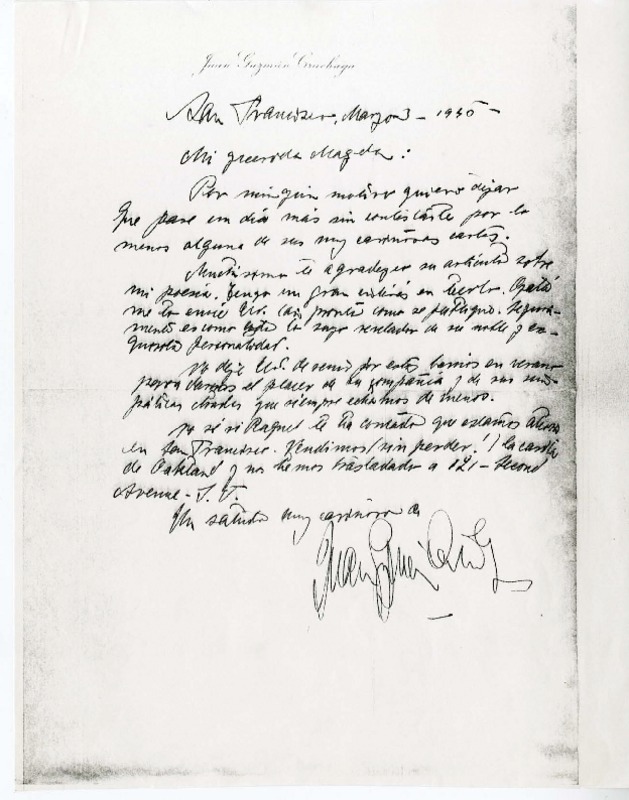 Juan Guzmán Cruchaga
San Francisco, Marzo 3 - 1950 -
Mi querida Magda:
Por ningún motivo quiero dejar
que pase un día más sin contestarte por lo
menos alguna de sus muy cariñosas cartas.
Muchísimo te agradezco su artículo sobre
mi poesía. Tengo un gran interés en leerlo. Ojalá
me lo envíe Ud. tan pronto como se publique. Segura-
mente es como todo lo suyo revelador de su noble y ex-
quisita personalidad.
No deje Ud. de venir por estos barrios en verano
para darnos el placer de su compañía y de sus sim-
páticas charlas que siempre echamos de menos.
No sé si Raquel te ha contado que estamos ahora
en San Francisco. Vendimos (sin perder!) la casita
de Oakland y nos hemos trasladado a 121 - Second
Avenue - S. F.
Un saludo muy cariñoso de
Juan Guzmán Cruchaga